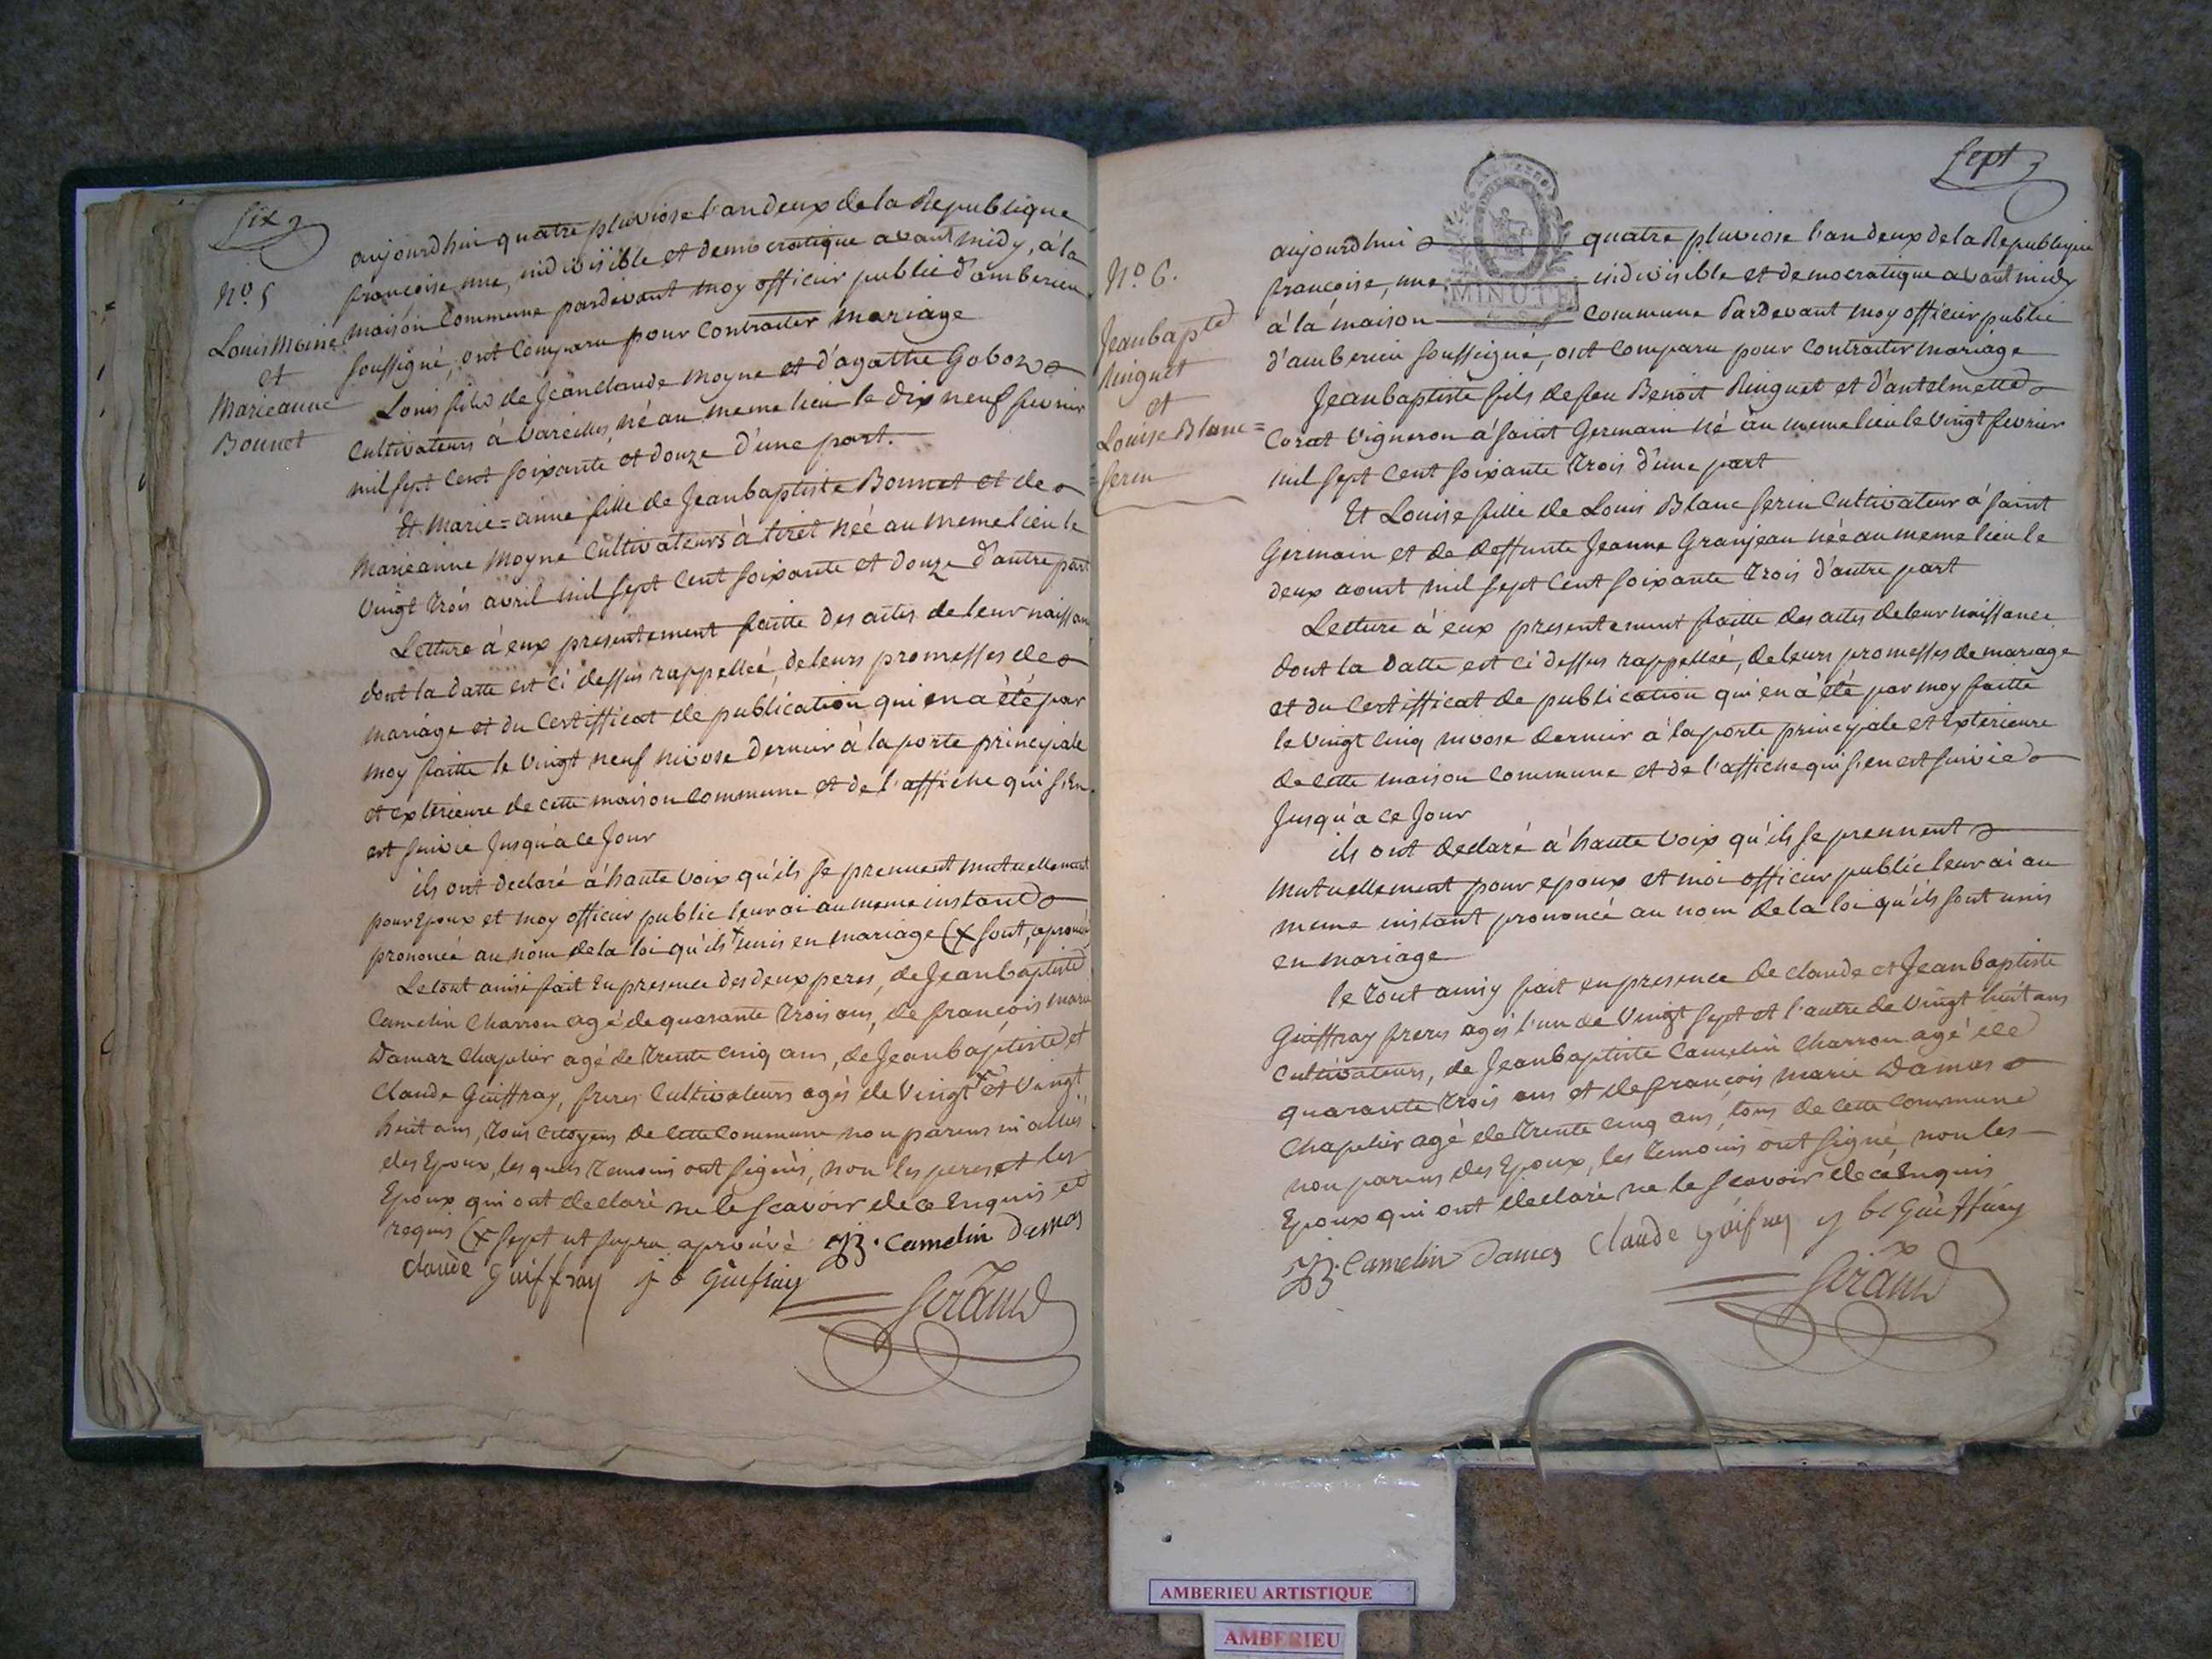 six
N.o 5
Louis Moine
et
Marieanne
Bonnet
aujourdhui quatre pluviose l'an deux de la Republique
francoise, une, indivisible et democratique avant midy, à la
maison Commune pardevant moy officier public d'amberieu
soussigné, ont Comparu pour Contracter mariage
Louis fils de Jeanclaude Moyne et d'agathe Gobon
Cultivateurs à Vareilles, né au meme lieu le dix neuf fevrier
mil sept Cent soixante et douze d'une part.
Et Marie=anne fille de Jeanbaptiste Bonnet et de
Marieanne Moyne Cultivateurs à tiret née au meme lieu le
Vingt trois avril mil sept Cent soixante et douze d'autre part
Lecture à eux presentement faitte des actes de leur naissan
dont la datte est ci dessus rappelleé, de leurs promesses de
mariage et du Certifficat de publication qui en a été par
moy faitte le Vingt neuf nivose dernier à la porte principale
et exterieure de cette maison Commune et de l'affiche qui s'en
est suivie Jusqu'à ce Jour
ils ont declaré à haute Voix qu'ils se prennent mutuellement
pour Epoux et moy officier public leur ai au meme instand
prononcé au nom de la loi qu'ils + unis en mariage (+ sont, aprouvé)
Le tout ainsi fait En presence des deux peres, de Jeanbaptiste
Camelin Charron agé de quarante trois ans, de francois marie
Damaz Chapelier agé de trente Cinq ans, de Jeanbaptiste et
Claude Guiffray, freres Cultivateurs agés de Vingt + et Vingt
huit ans, tous Citoyens de cette Commune non parens ni alliés
des Epoux, les quels temoins ont signés, non les peres et les
Epoux qui ont declaré ne le scavoir de ce Enquis et
requis (+ sept ut supra aprouvé JB. Camelin Damas
Claude Guiffray j b Guiffray
Gerand
sept
MINUTE
N.o 6.
Jeanbapte
Ringuet
et
Louise Blanc=
=Serin
aujourdhui quatre pluviose l'an deux de la Republique
francoise, une indivisible et democratique avant midy
à la maison Commune Pardevant moy officier public
d'amberieu soussigné, ont Comparu pour Contracter mariage
Jeanbaptiste fils de feu Benoit Ringuet et d'antelmette
Corat Vigneron à saint Germain né au meme lieu le Vingt fevrier
mil sept Cent soixante trois d'une part
Et Louise fille de Louis Blanc Serin Cultivateur à saint
Germain et de deffunte Jeanne Granjean née au meme lieu le
deux aout mil sept Cent soixante trois d'autre part
Lecture à eux presentement faitte des actes de leur naissance
dont la datte est ci dessus rappelleé, de leurs promesses de mariage
et du Certifficat de publication qui en a été par moy faitte
le Vingt Cinq nivose dernier à la porte principale et Exterieure
de cette maison Commune et de l'affiche qui s'en est suivie
Jusqu'à ce Jour
ils ont declaré à haute Voix qu'ils se prennent
mutuellement pour epoux et moi officier public leur ai au
meme instant prononcé au nom de la loi qu'ils sont unis
en mariage
le tout ainsy fait en presence de claude et Jeanbaptiste
Guiffray freres agés l'un de Vingt sept et l'autre de Vingt huit ans
Cultivateurs, de Jeanbaptiste Camelin Charron agé de
quarante trois ans et de francois marie Damas
Chapelier agé de trente Cinq ans, tous de cette Commune
non parens des Epoux, les temoins ont signé, non les
Epoux qui ont declaré ne le scavoir de ce Enquis
JB. Camelin Damas Claude Guifray j b Guiffray
Gerand
AMBERIEU ARTISTIQUE
AMBERIEU